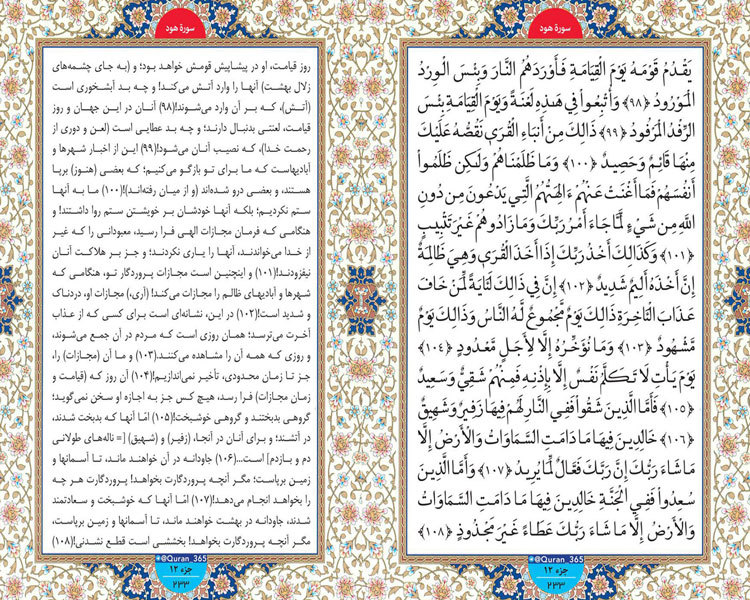 سورهٔ هود
یَقْدُمُ قَوْمَهُ یَوْمَ الْقِیَامَةِ فَأَوْرَدَهُمُ النَّارَ وَبِئْسَ الْوِرْدُ
الْمَوْرُودُ ﴿۹۸﴾ وَأُتْبِعُوا فِی هَذِهِ لَعْنَةً وَیَوْمَ الْقِیَامَةِ بِئْسَ
الرِّفْدُ الْمَرْفُودُ ﴿۹۹﴾ ذَالِكَ مِنْ أَنبَاءِ الْقُرَی نَقُصُّهُ عَلَیْكَ
مِنْهَا قَائِمٌ وَحَصِیدٌ ﴿۱۰۰﴾ وَمَا ظَلَمْنَاهُمْ وَلَكِن ظَلَمُوا
أَنفُسَهُمْ فَمَا أَغْنَتْ عَنْهُمْ ءَالِهَتُهُمُ الَّتِی یَدْعُونَ مِن دُونِ
اللَّهِ مِن شَیْءٍ لَّمَّا جَاءَ أَمْرُ رَبِّكَ وَمَا زَادُوهُمْ غَیْرَ تَتْبِیبٍ
﴿۱۰۱﴾ وَكَذَالِكَ أَخْذُ رَبِّكَ إِذَا أَخَذَ الْقُرَی وَهِیَ ظَالِمَةٌ
إِنَّ أَخْذَهُ أَلِیمٌ شَدِیدٌ ﴿۱۰۲﴾ إِنَّ فِی ذَالِكَ لَءَایَةً لِّمَنْ خَافَ
عَذَابَ الْءَاخِرَةِ ذَالِكَ یَوْمٌ مَّجْمُوعٌ لَّهُ النَّاسُ وَذَالِكَ یَوْمٌ
مَّشْهُودٌ ﴿۱۰۳﴾ وَمَا نُؤَخِّرُهُ إِلَّا لِأَجَلٍ مَّعْدُودٍ ﴿۱۰۴﴾
یَوْمَ یَأْتِ لَا تَكَلَّمُ نَفْسٌ إِلَّا بِإِذْنِهِ فَمِنْهُمْ شَقِیٌّ وَسَعِیدٌ
﴿۱۰۵﴾ فَأَمَّا الَّذِینَ شَقُوا فَفِی النَّارِ لَهُمْ فِیهَا زَفِیرٌ وَشَهِیقٌ
﴿۱۰۶﴾ خَالِدِینَ فِیهَا مَا دَامَتِ السَّمَاوَاتُ وَالْأَرْضُ إِلَّا
مَا شَاءَ رَبُّكَ إِنَّ رَبَّكَ فَعَّالٌ لِّمَا یُرِیدُ ﴿۱۰۷﴾ وَأَمَّا الَّذِینَ
سُعِدُوا فَفِی الْجَنَّةِ خَالِدِینَ فِیهَا مَا دَامَتِ السَّمَاوَاتُ
وَالْأَرْضُ إِلَّا مَا شَاءَ رَبُّكَ عَطَاءً غَیْرَ مَجْذُوذٍ ﴿۱۰۸﴾
@Quran_365
جزء ۱۲
۲۳۳
سورهٔ هود
روز قیامت، او در پیشاپیش قومش خواهد بود؛ و (به جای چشمه‌های
زلال بهشت) آنها را وارد آتش می‌کند! و چه بد آبشخوری است
(آتش)، که بر آن وارد می‌شوند!(۹۸) آنان در این جهان و روز
قیامت، لعنتی بدنبال دارند؛ و چه بد عطایی است (لعن و دوری از
رحمت خدا)، که نصیب آنان می‌شود!(۹۹) این از اخبار شهرها و
آبادیهاست که ما برای تو بازگو می‌کنیم؛ که بعضی (هنوز) برپا
هستند، و بعضی درو شده‌اند (و از میان رفته‌اند)!(۱۰۰) ما به آنها
ستم نکردیم؛ بلکه آنها خودشان بر خویشتن ستم روا داشتند! و
هنگامی که فرمان مجازات الهی فرا رسید، معبودانی را که غیر
از خدا می‌خواندند، آنها را یاری نکردند؛ و جز بر هلاکت آنان
نیفزودند!(۱۰۱) و اینچنین است مجازات پروردگار تو، هنگامی که
شهرها و آبادیهای ظالم را مجازات می‌کند! (آری،) مجازات او، دردناک
و شدید است!(۱۰۲) در این، نشانه‌ای است برای کسی که از عذاب
آخرت می‌ترسد؛ همان روزی است که مردم در آن جمع می‌شوند،
و روزی که همه آن را مشاهده می‌کنند.(۱۰۳) و ما آن (مجازات) را،
جز تا زمان محدودی، تأخیر نمی‌اندازیم!(۱۰۴) آن روز که (قیامت و
زمان مجازات) فرا رسد، هیچ کس جز به اجازه او سخن نمی‌گوید؛
گروهی بدبختند و گروهی خوشبخت!(۱۰۵) امّا آنها که بدبخت شدند،
در آتشند؛ و برای آنان در آنجا، (زفیر) و (شهیق) [= ناله‌های طولانی
دم و بازدم] است...(۱۰۶) جاودانه در آن خواهند ماند، تا آسمانها و
زمین برپاست؛ مگر آنچه پروردگارت بخواهد! پروردگارت هر چه
را بخواهد انجام می‌دهد!(۱۰۷) امّا آنها که خوشبخت و سعادتمند
شدند، جاودانه در بهشت خواهند ماند، تا آسمانها و زمین برپاست،
مگر آنچه پروردگارت بخواهد! بخششی است قطع نشدنی!(۱۰۸)
@Quran_365
جزء ۱۲
۲۳۳